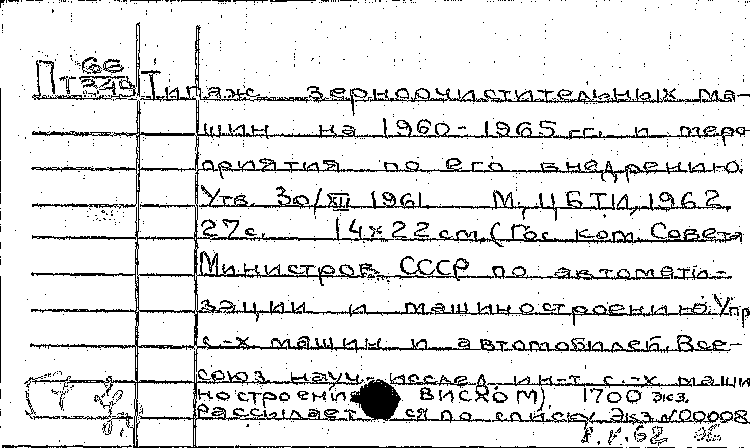 Пт 66/349 Типаж зерноочистительных ма-
шин на 1960-1965 гг. и меро-
приятия по его внедрению.
Утв. 30/XII 1961. М., ЦБТИ, 1962.
27 с. 14×22 см. (Гос. ком. Совета
Министров СССР по автомати-
зации и машиностроению. Упр.
с.-х. машин и автомобилей. Все-
союз. науч.-исслед. ин-т с.-х. маши-
ностроения ВИСХОМ). 1700 экз.
Рассылается по списку. Экз. №00008